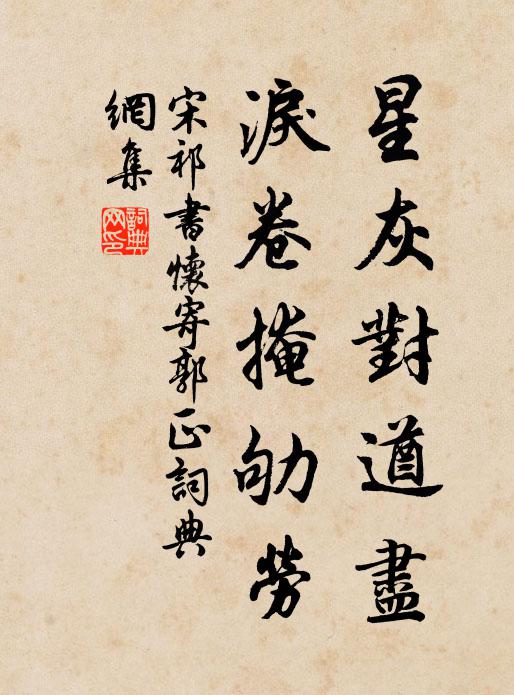 星灰對遒盡
淚卷掩劬勞
宋祁書懷寄郭正詞典
網集
詞典
网印